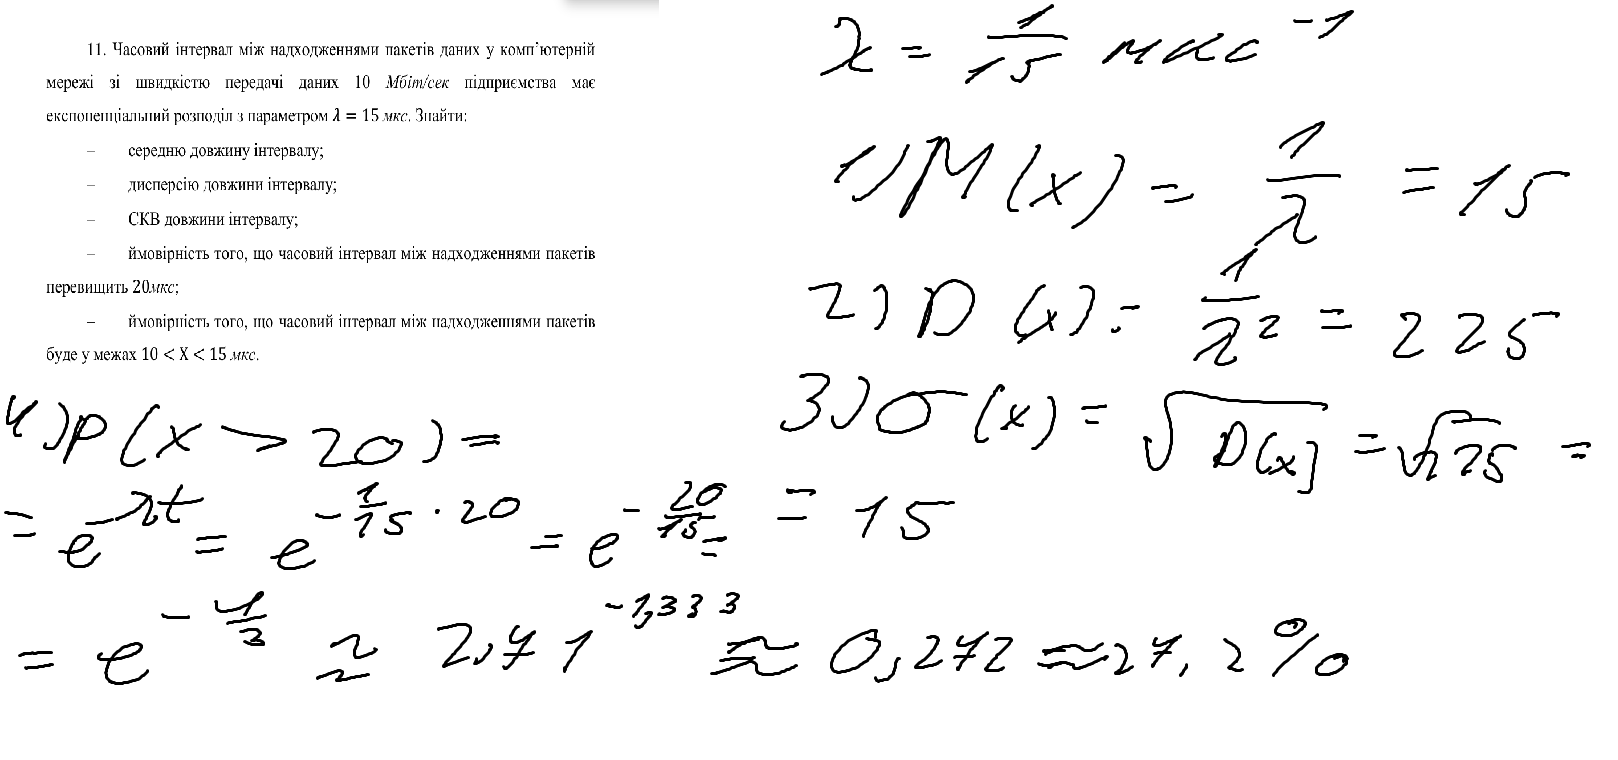 11. Часовий інтервал між надходженнями пакетів даних у комп’ютерній
мережі зі швидкістю передачі даних 10 Мбіт/сек підприємства має
експоненціальний розподіл з параметром λ = 15 мкс. Знайти:
– середню довжину інтервалу;
– дисперсію довжини інтервалу;
– СКВ довжини інтервалу;
– ймовірність того, що часовий інтервал між надходженнями пакетів
перевищить 20мкс;
– ймовірність того, що часовий інтервал між надходженнями пакетів
буде у межах 10 < X < 15 мкс.
λ = 1/15 мкс^-1
1) M(x) = 1/λ = 15
2) D(x) = 1/λ^2 = 225
3) σ(x) = √D(x) = √225 =
= 15
4) P(x > 20) =
= e^-λt = e^(-1/15 · 20) = e^(-20/15) =
= e^(-4/3) ≈ 2,71^(-1,333) ≈ 0,272 ≈ 27,2%